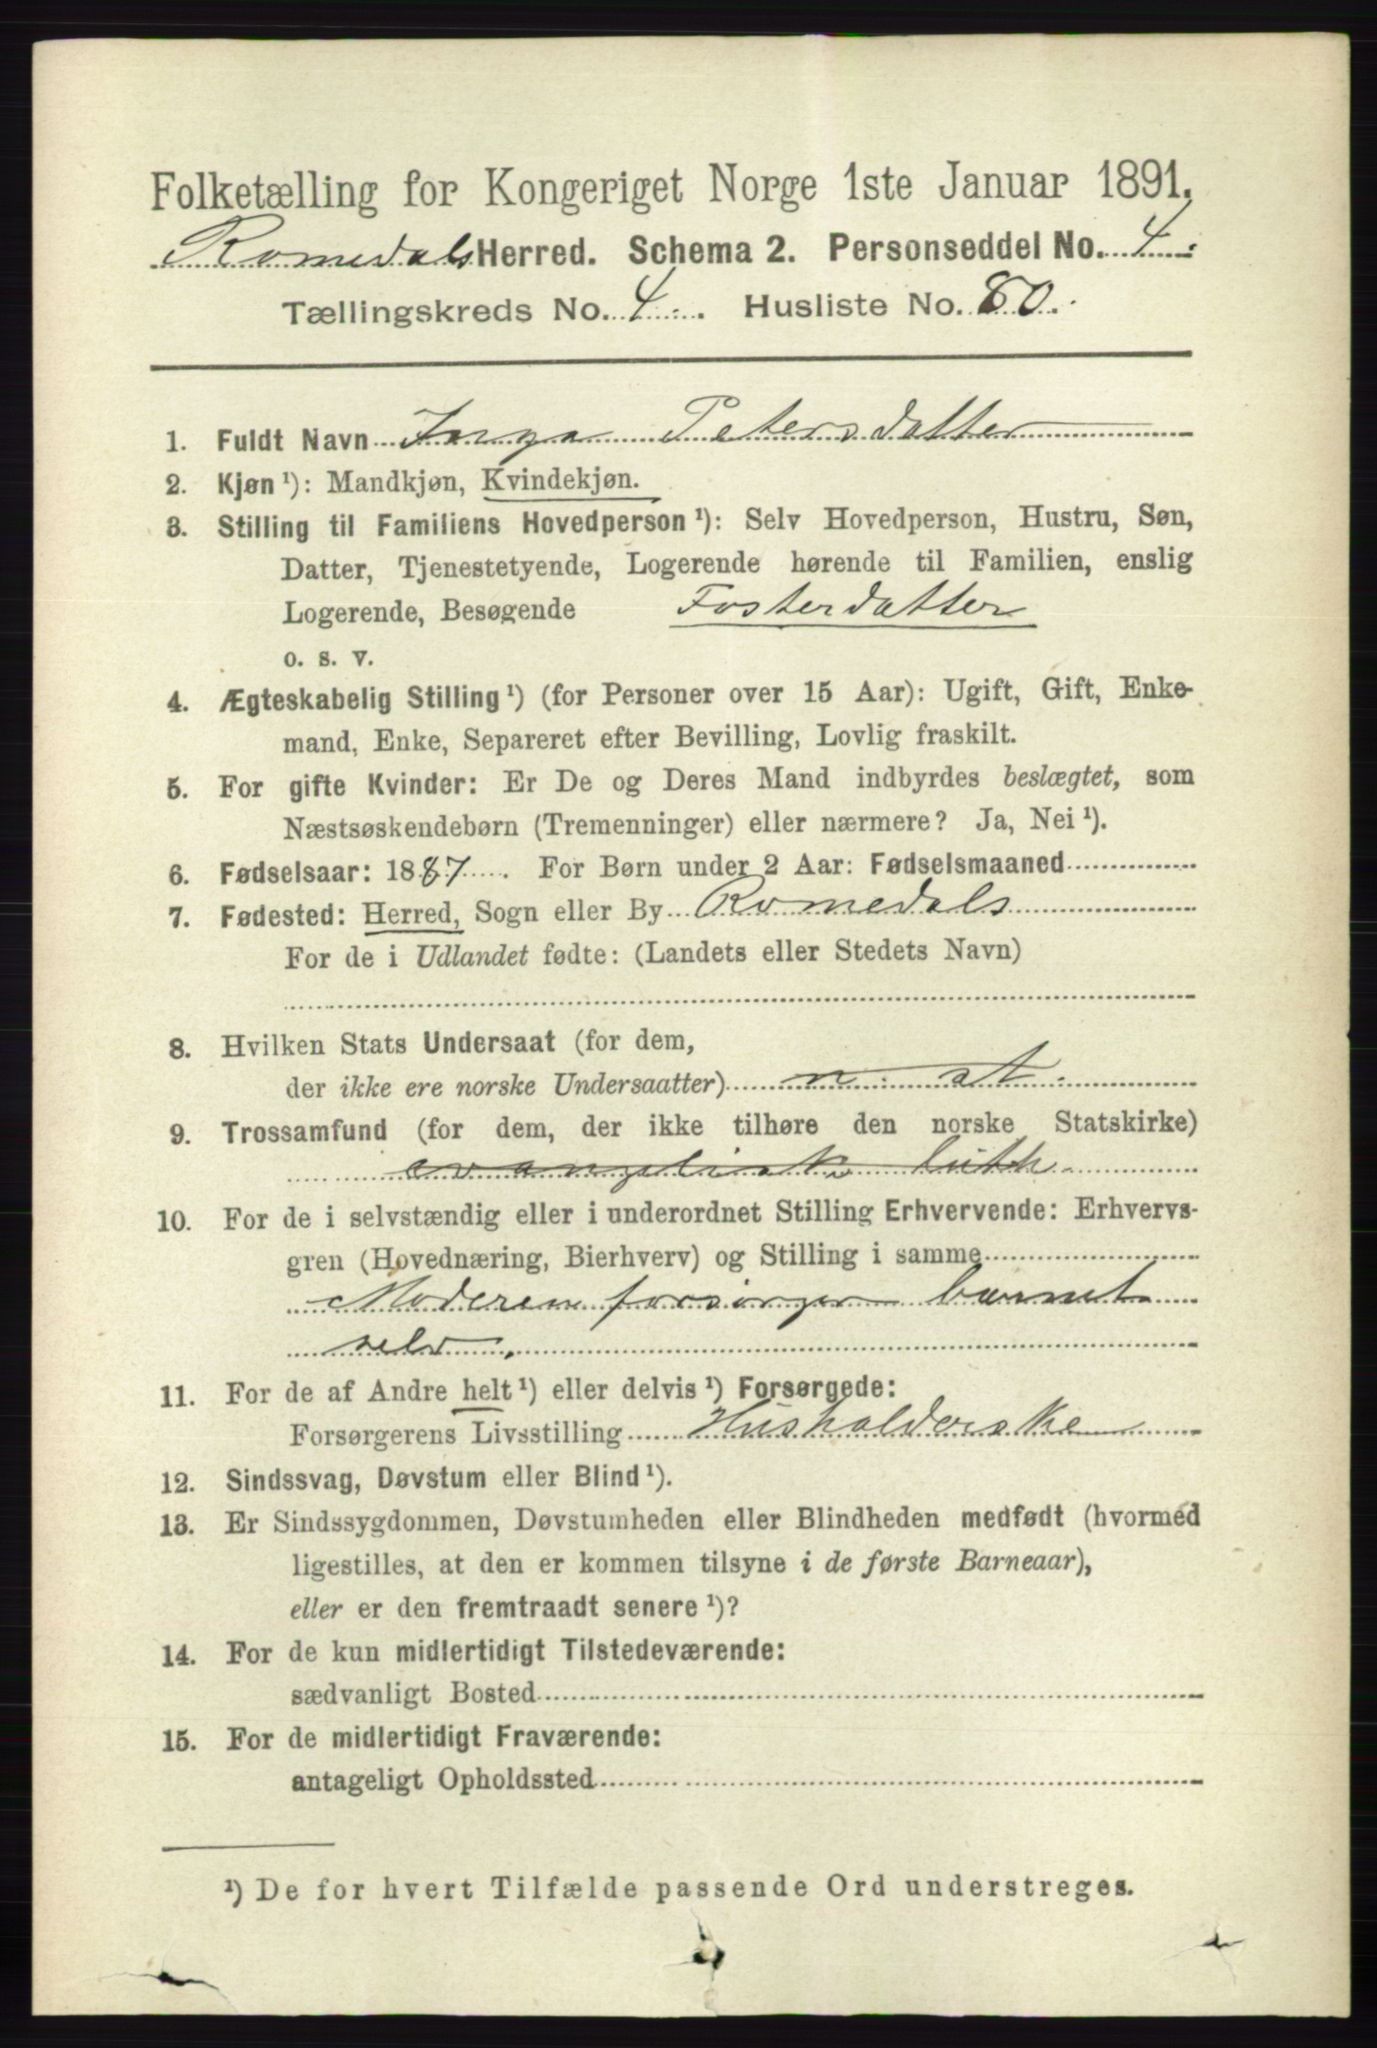 Folketælling for Kongeriget Norge 1ste Januar 1891.
Romedals Herred. Schema 2. Personseddel No. 4.
Tællingskreds No. 4. Husliste No. 80.
1. Fuldt Navn Inga Petersdatter
2. Kjøn ¹): Mandkjøn, Kvindekjøn.
3. Stilling til Familiens Hovedperson ¹): Selv Hovedperson, Hustru, Søn,
Datter, Tjenestetyende, Logerende hørende til Familien, enslig
Logerende, Besøgende Fosterdatter
o. s. v.
4. Ægteskabelig Stilling ¹) (for Personer over 15 Aar): Ugift, Gift, Enke-
mand, Enke, Separeret efter Bevilling, Lovlig fraskilt.
5. For gifte Kvinder: Er De og Deres Mand indbyrdes beslægtet, som
Næstsøskendebørn (Tremenninger) eller nærmere? Ja, Nei ¹).
6. Fødselsaar: 1887. For Børn under 2 Aar: Fødselsmaaned
7. Fødested: Herred, Sogn eller By Romedals
For de i Udlandet fødte: (Landets eller Stedets Navn)
8. Hvilken Stats Undersaat (for dem,
der ikke ere norske Undersaatter) n. st.
9. Trossamfund (for dem, der ikke tilhøre den norske Statskirke)
evangelisk luth
10. For de i selvstændig eller i underordnet Stilling Erhvervende: Erhvervs-
gren (Hovednæring, Bierhverv) og Stilling i samme
Moderen forsørger barnet
selv.
11. For de af Andre helt ¹) eller delvis ¹) Forsørgede:
Forsørgerens Livsstilling Husholderske
12. Sindssvag, Døvstum eller Blind ¹).
13. Er Sindssygdommen, Døvstumheden eller Blindheden medfødt (hvormed
ligestilles, at den er kommen tilsyne i de første Barneaar),
eller er den fremtraadt senere ¹)?
14. For de kun midlertidigt Tilstedeværende:
sædvanligt Bosted
15. For de midlertidigt Fraværende:
antageligt Opholdssted
¹) De for hvert Tilfælde passende Ord understreges.